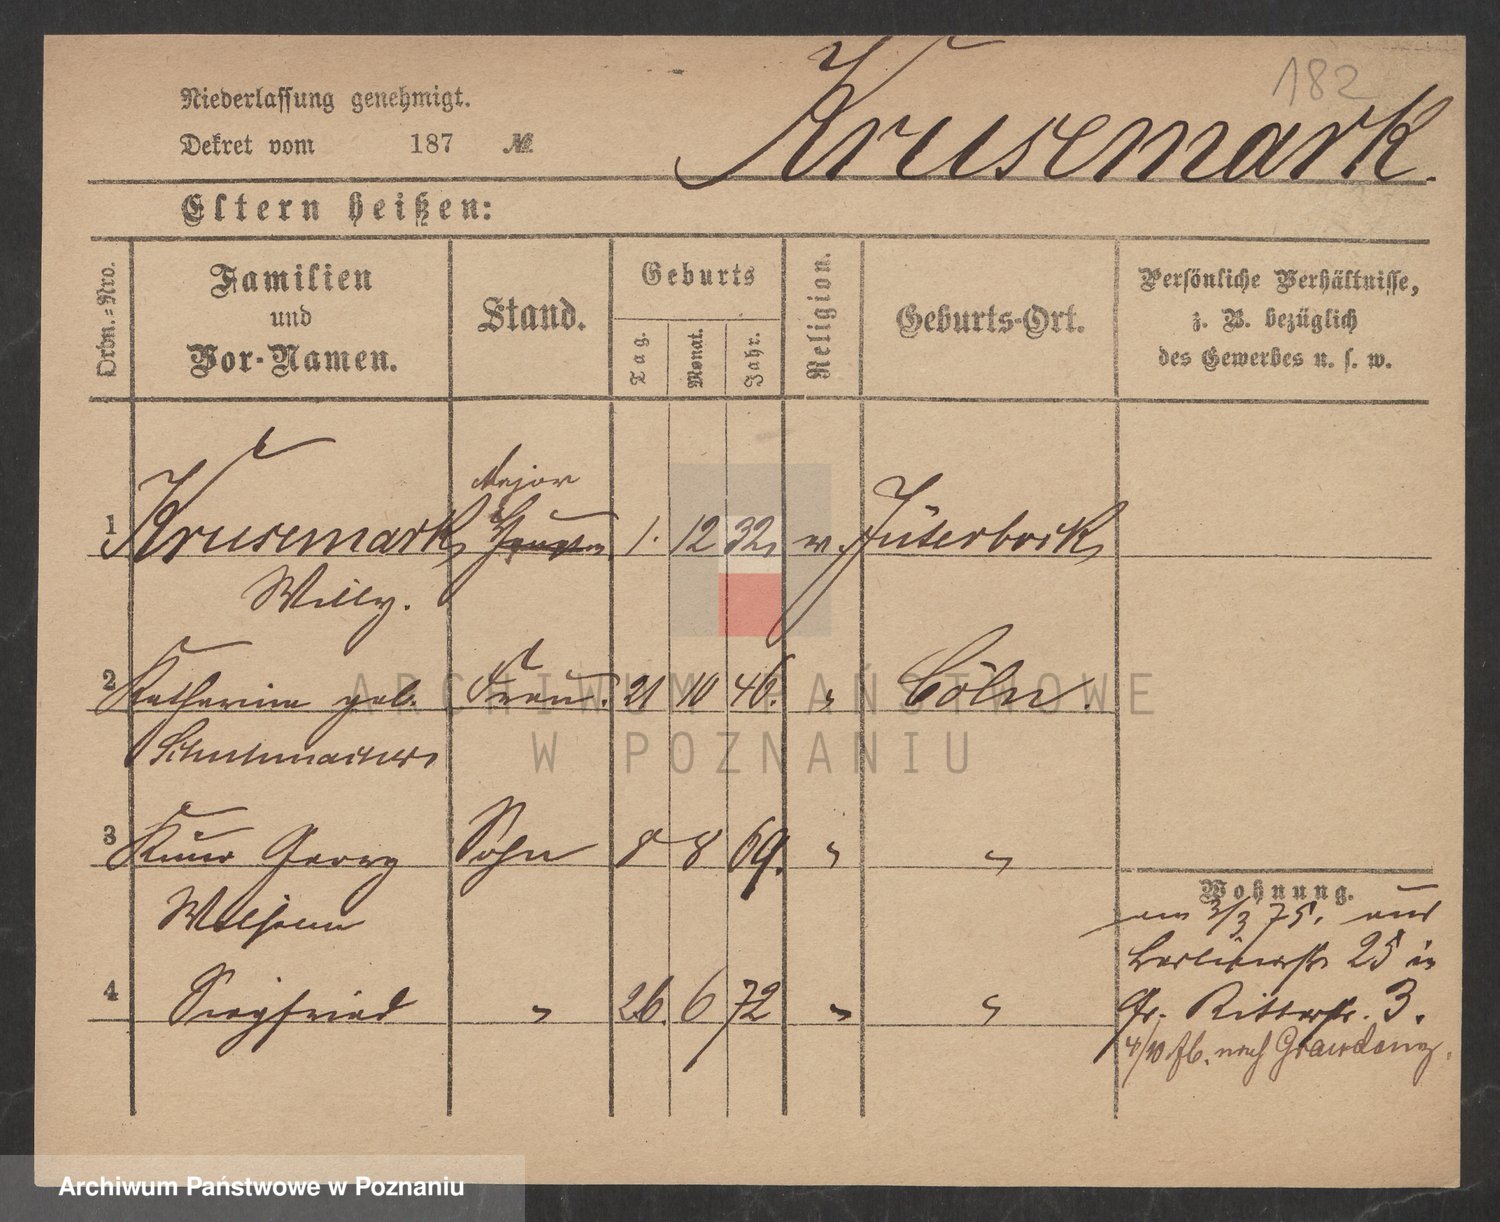 182
Niederlassung genehmigt.
Krusemark.
Dekret vom 187 №
Eltern heißen:
Ordn.=Nro.
Familien und Vor-Namen.
Stand.
Geburts
Tag.
Monat.
Jahr.
Religion.
Geburts-Ort.
Persönliche Verhältnisse,
z. B. bezüglich
des Gewerbes u. s. w.
Major
1 Krusemark, 1. 12 32, Jüterbock,
Willy.
2 Katharina geb. Frau. 21 10 46. " Cöln.
3 Kuno Georg Sohn 8 8 69. " "
Wohnung.
am 3/3 75. aus
Wilhelm
Berlinerstr 25 in
4 Siegfried " 26. 6 72 " "
Gr. Ritterstr. 3.
4/10 76. nach Graudenz.
ARCHIWUM PAŃSTWOWE
W POZNANIU
Archiwum Państwowe w Poznaniu